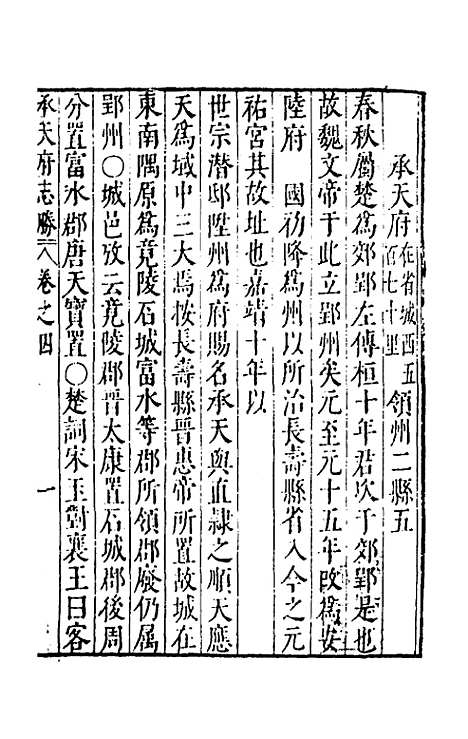 承天府在省城西五百七十里領州二縣五
春秋屬楚爲郊郢左傳桓十年君次于郊郢是也
故魏文帝于此立郢州矣元至元十五年改爲安
陸府　國初降爲州以所治長壽縣省入今之元
祐宮其故址也嘉靖十年以
世宗潛邸陞州爲府賜名承天與直隷之順天應
天爲域中三大焉按長壽縣晉惠帝所置故城在
東南隅原爲竟陵石城富水等郡所領郡廢仍属
郢州〇城邑攷云竟陵郡晉太康置石城郡後周
分置富水郡唐天寳置〇楚詞宋玉對襄王曰客
承天府志勝 八卷之四 一